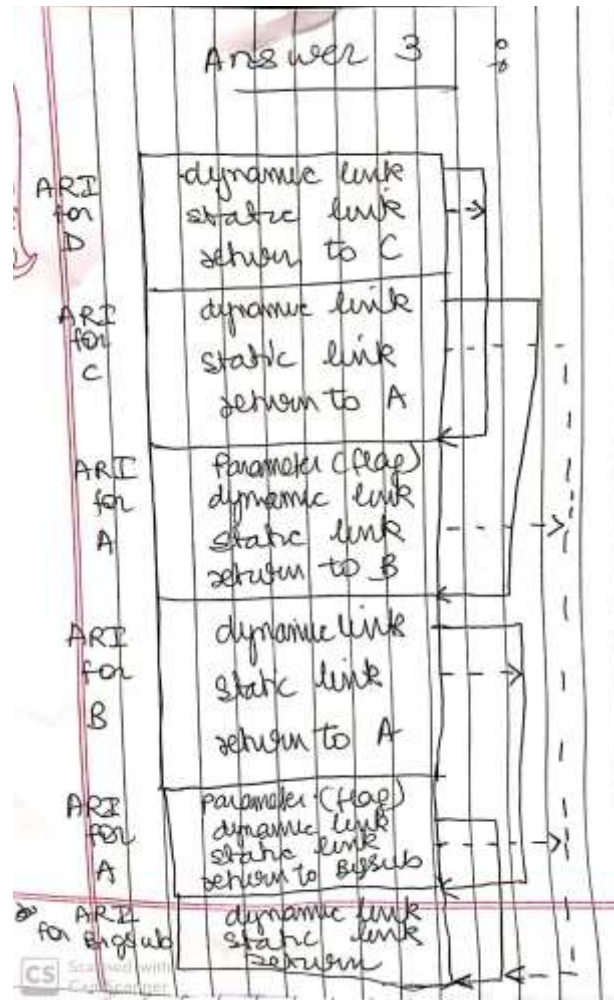 Answer 3 :
ARI for D
dynamic link
static link
return to C
ARI for C
dynamic link
static link
return to A
ARI for A
Parameter (flag)
dynamic link
static link
return to B
ARI for B
dynamic link
static link
return to A
ARI for A
parameter (flag)
dynamic link
static link
return to BigSub
ARI for BigSub
dynamic link
static link
return
CS Scanned with
CamScanner